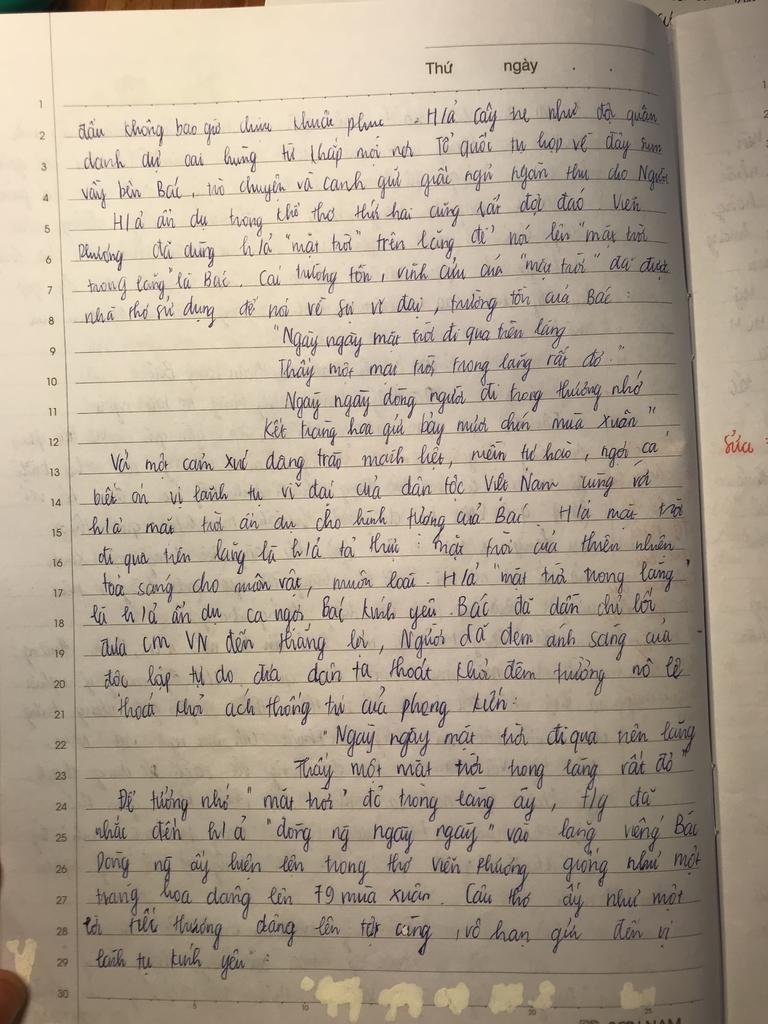 Thứ ngày . .
đầu không bao giờ chịu khuất phục. H/ả cây tre như đội quân
danh dự oai hùng từ khắp mọi nơi Tổ quốc tụ họp về đây sum
vầy bên Bác, trò chuyện và canh giữ giấc ngủ ngàn thu cho Người
H/ả ẩn dụ trong khổ thơ thứ hai cũng rất độc đáo. Viễn
Phương đã dùng h/ả "mặt trời" trên lăng để nói lên "mặt trời
trong lăng" là Bác. Cái trường tồn, vĩnh cửu của "mặt trời" đã được
nhà thơ sử dụng để nói về sự vĩ đại, trường tồn của Bác:
"Ngày ngày mặt trời đi qua trên lăng
Thấy một mặt trời trong lăng rất đỏ."
Ngày ngày dòng người đi trong thương nhớ
Kết tràng hoa gửi bảy mươi chín mùa xuân"
Với một cảm xúc dâng trào mãnh liệt, niềm tự hào, ngợi ca
biết ơn vị lãnh tụ vĩ đại của dân tộc Việt Nam cùng với
h/ả mặt trời ẩn dụ cho hình tượng của Bác. H/ả mặt trời
đi qua trên lăng là h/ả tả thực: mặt trời của thiên nhiên
toả sáng cho muôn vật, muôn loài. H/ả "mặt trời trong lăng"
là h/ả ẩn dụ ca ngợi Bác kính yêu. Bác đã dẫn chỉ lối
đưa CM VN đến thắng lợi, Người đã đem ánh sáng của
độc lập tự do đưa dân ta thoát khỏi đêm trường nô lệ
thoát khỏi ách thống trị của phong kiến:
"Ngày ngày mặt trời đi qua trên lăng
Thấy một mặt trời trong lăng rất đỏ"
Để tưởng nhớ "mặt trời" đỏ trong lăng ấy, t/g đã
nhắc đến h/ả "dòng ng ngày ngày" vào lăng viếng Bác
Dòng ng ấy hiện lên trong thơ Viễn Phương giống như một
tràng hoa dâng lên 79 mùa xuân. Câu thơ ấy như một
lời tiếc thương dâng lên tột cùng, vô hạn gửi đến vị
lãnh tụ kính yêu:
Sửa: